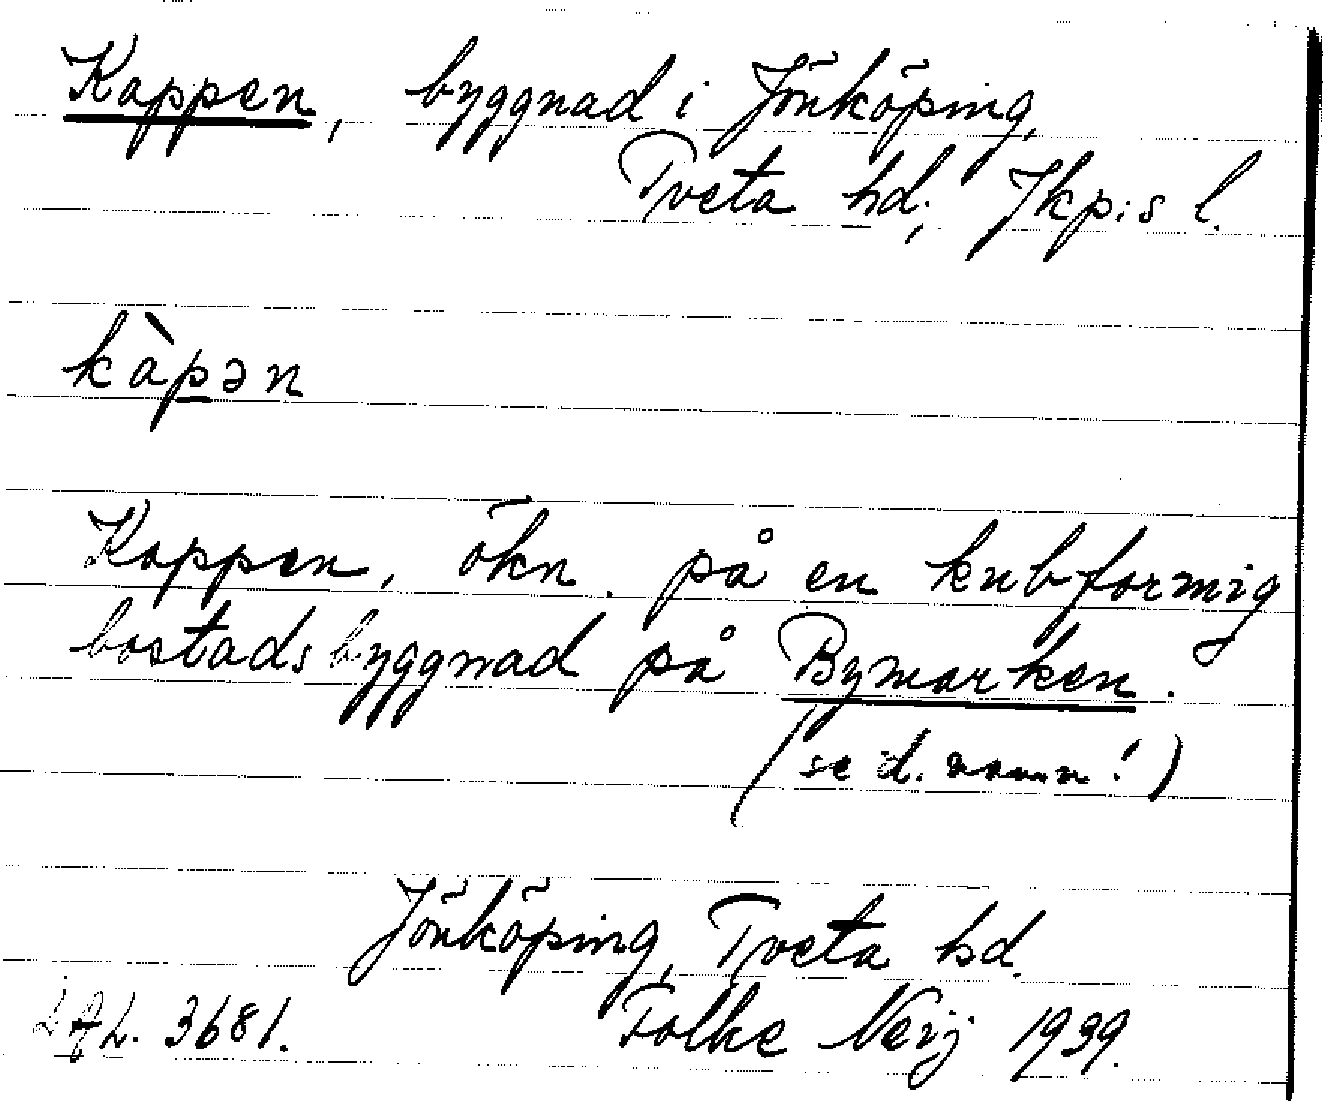 Kappen, byggnad i Jönköping,
Tveta hd; Jkp:s l.
kàpən
Kappen, ökn. på en kubformig
bostadsbyggnad på Bymarken.
(se d. namn!)
Jönköping, Tveta hd.
3681. Folke Neij 1939.